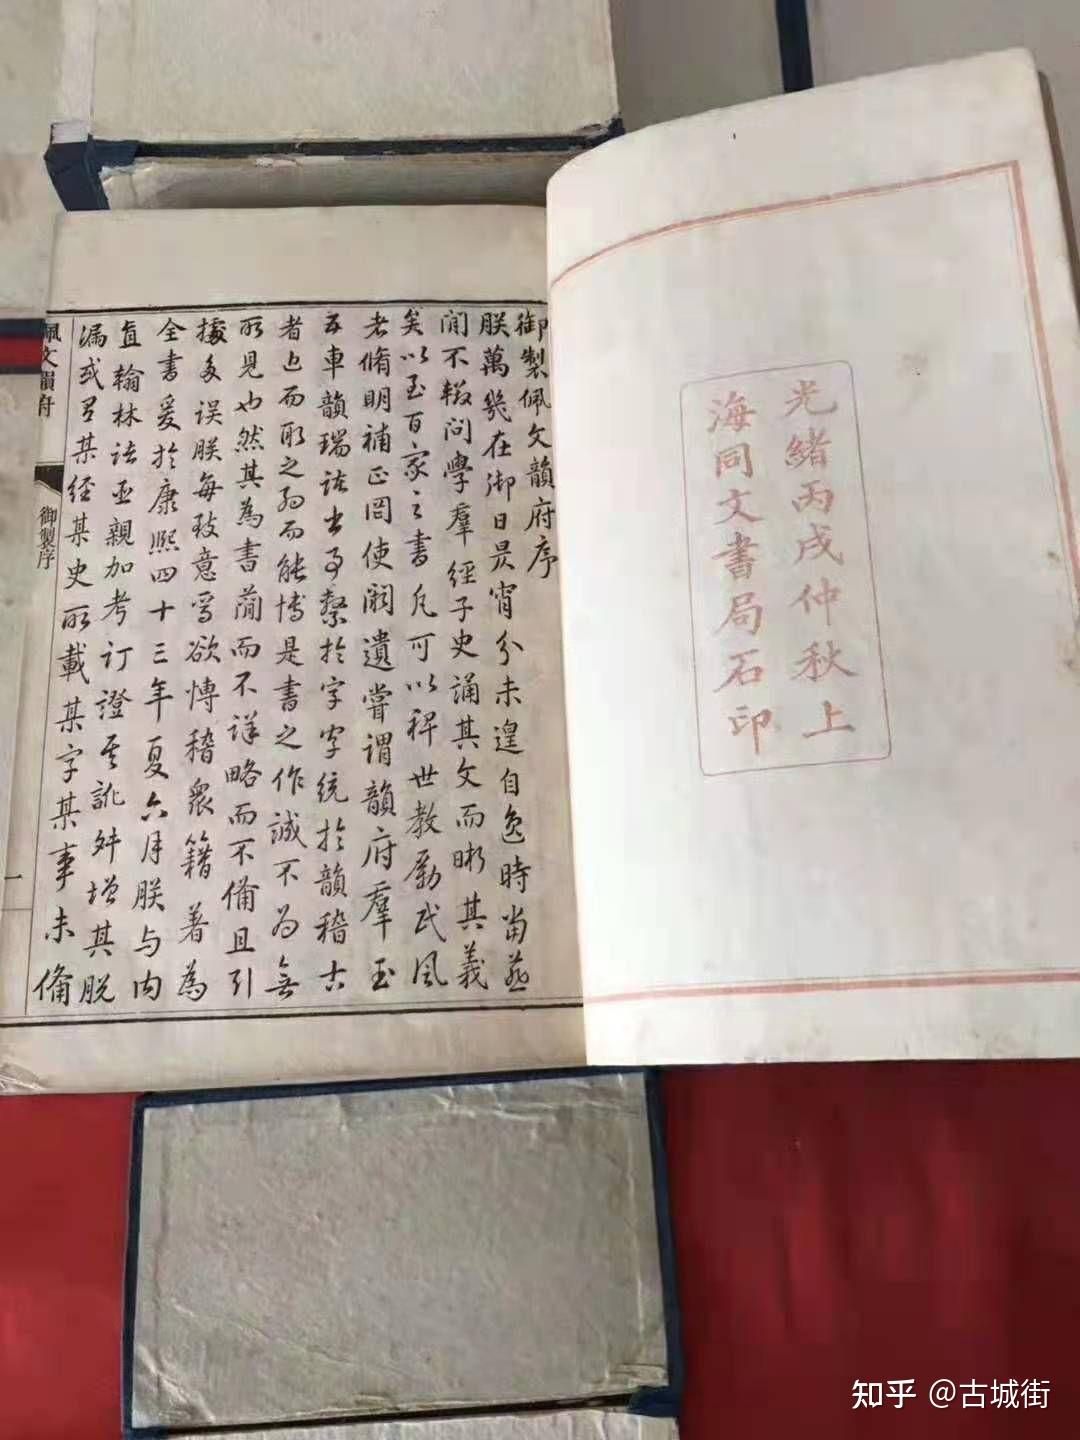 光緒丙戌仲秋上
海同文書局石印
御製佩文韻府序
朕萬幾在御日昃宵分未遑自逸時當燕
閒不輟問學羣經子史誦其文而晰其義
矣以至百家之書凡可以裨世教勵民風
者脩明補正罔使闕遺嘗謂韻府羣玉
五車韻瑞諸書事繫於字字統於韻稽古
者近而取之約而能博是書之作誠不為無
所見也然其為書簡而不詳略而不備且引
據多誤朕每致意焉欲博稽眾籍著為
全書爰於康熙四十三年夏六月朕与内
直翰林諸臣親加考訂證其訛舛增其脫
漏或有某經某史所載某字某事未備
佩文韻府 御製序 一
知乎 @古城街